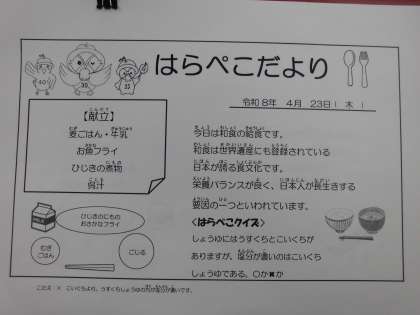 はらぺこだより
令和8年 4月 23日( 木 )
【献立】
麦ごはん・牛乳
お魚フライ
ひじきの煮物
呉汁
今日は和食の給食です。
和食は世界遺産にも登録されている
日本が誇る食文化です。
栄養バランスが良く、日本人が長生きする
要因の一つといわれています。
<はらぺこクイズ>
しょうゆにはうすくちとこいくちが
ありますが、塩分が濃いのはこいくち
しょうゆである。○か✖か
ひじきのにもの
おさかなフライ
むぎ
ごはん
ごじる
こたえ:× こいくちより、うすくちしょうゆの方が塩分が濃いです。